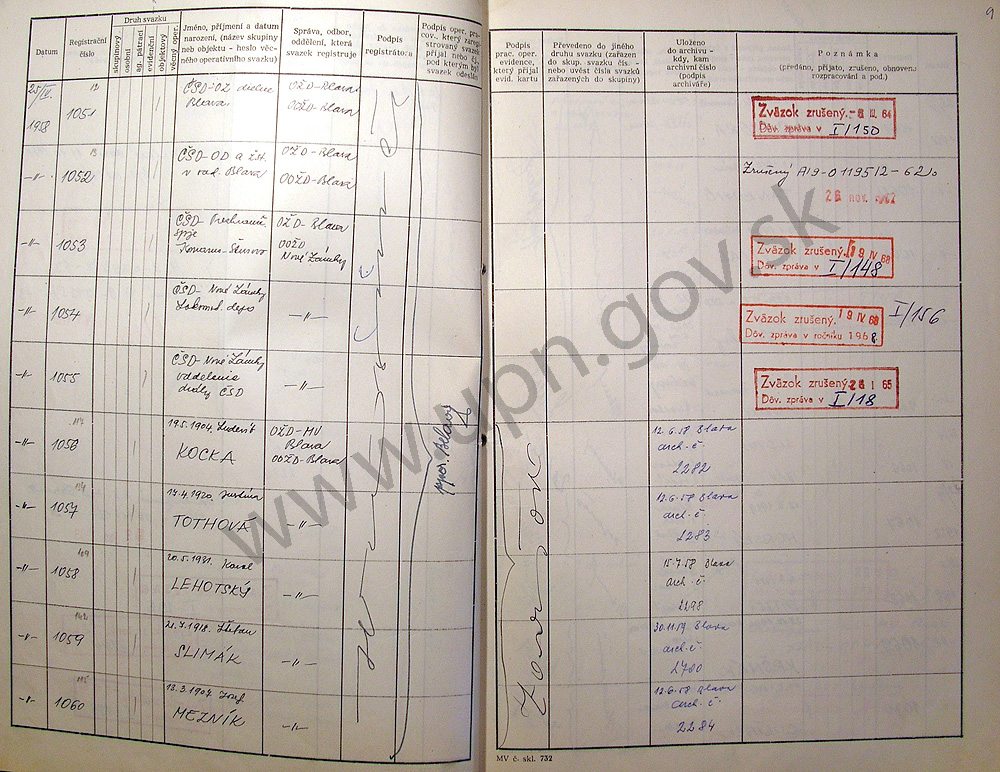 9
Datum
Registrační číslo
Druh svazku
skupinový
osobní
ag. pátrací
evidenční
objektový
věcný oper.
Jméno, příjmení a datum
narození, (název skupiny
neb objektu - heslo věc-
ného operativního svazku)
Správa, odbor,
oddělení, která
svazek registruje
Podpis
registrátora
Podpis oper. pra-
cov., který zareg-
istrovaný svazek
přijal nebo čís.
pod kterým byl
svazek odeslán
Podpis
prac. oper.
evidence,
který přijal
evid. kartu
Převedeno do jiného
druhu svazku (zařazen
do skup. svazku čís. -
nebo uvést čísla svazků
zařazených do skupiny)
Uloženo
do archivu -
kdy, kam
archivní číslo
(podpis
archiváře)
Poznámka
(předáno, přijato, zrušeno, obnoveno
rozpracování a pod.)
25/IV.
1958
1051
ČSD-OZ
Blava
OŽD-Blava
OOŽD-Blava
Zväzok zrušený.
Dôv. zpráva v I/150
-"- 1052
ČSD-OD a žst.
v rad. Blava
OŽD-Blava
OOŽD-Blava
Zrušený A19-01195/2-62.
26 nov.
-"- 1053
ČSD-
Komárno-Štúrovo
OŽD-Blava
OOŽD
Nové Zámky
Zväzok zrušený. 19 IV 68
Dôv. zpráva v I/148
-"- 1054
ČSD-Nové Zámky
Lokomot. depo
-"-
Zväzok zrušený. 19 IV 68
Dôv. zpráva v ročníku 1968
I/156
-"- 1055
ČSD-Nové Zámky
oddelenie
dráhy ČSD
-"-
Zväzok zrušený. I 65
Dôv. zpráva v I/18
-"- 1056
19.5.1904. Ľudevít
KOCKA
OŽD-MV
Blava
OOŽD-Blava
12.6.58 Blava
arch.č.
2282
-"- 1057
17.4.1920. Justína
TOTHOVÁ
-"-
12.6.58 Blava
arch.č.
2283
-"- 1058
20.5.1931. Karol
LEHOTSKÝ
-"-
15.7.58 Blava
arch.č.
2298
-"- 1059
21.7.1918. Štefan
SLIMÁK
-"-
30.11.59 Blava
arch.č.
2780
-"- 1060
13.3.1904. Jozef
MEZNÍK
-"-
12.6.58 Blava
arch.č.
2284
MV č. skl. 732
www.upn.gov.sk